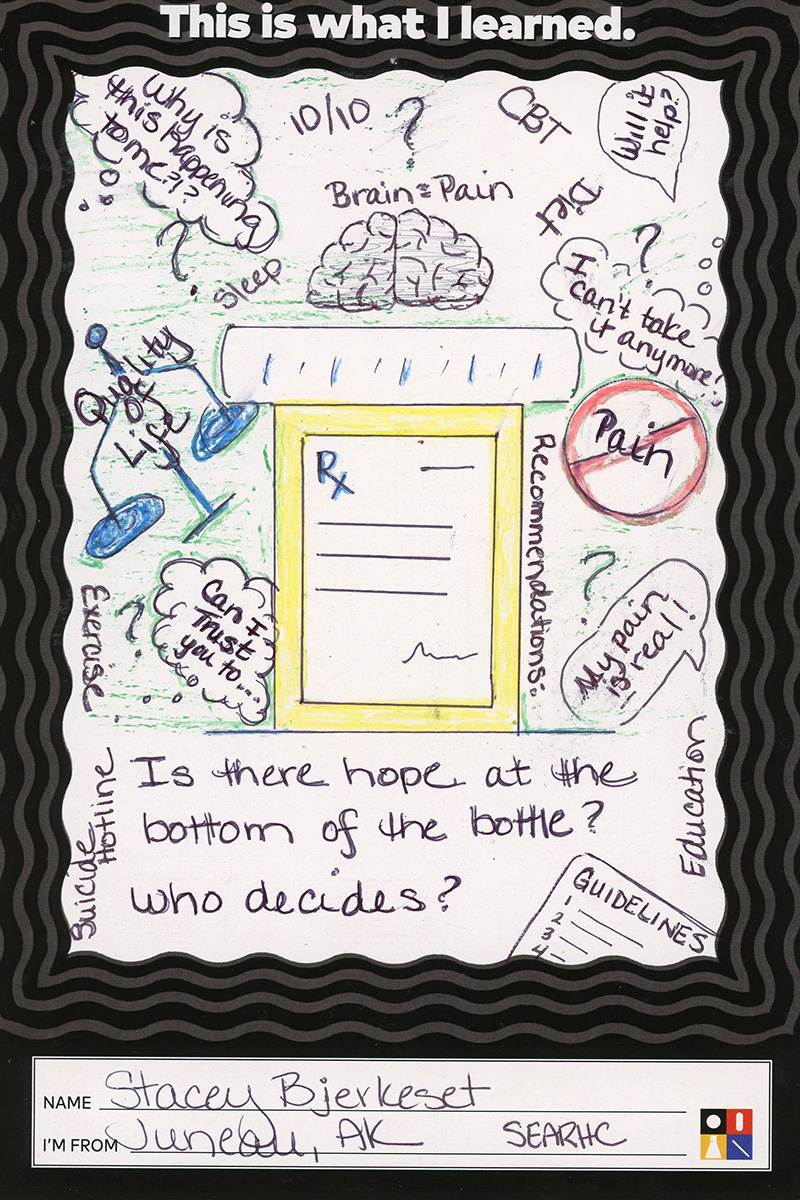 This is what I learned.
Why is
this happening
to me?!?
10/10 ?
CBT
Will it
help?
Brain = Pain
Diet
?
Sleep
?
I
can't take
it anymore!
Quality
of
Life
Pain
Rx
Recommendations:
Exercise
?
Can I
Trust
you to....
?
My pain
is real!
Is there hope at the
bottom of the bottle?
who decides?
Suicide
Hotline
Education
GUIDELINES
1
2
3
4
NAME Stacey Bjerkeset
I'M FROM Juneau, AK SEARHC